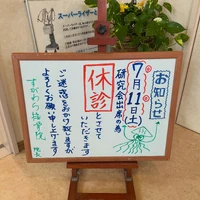 スーパーライザー
お知らせ
7月11日(土)
研究会出席の為
休診
とさせて
いただきます
ご迷惑をおかけ致しますが
よろしくお願い申し上げます
すがわら接骨院